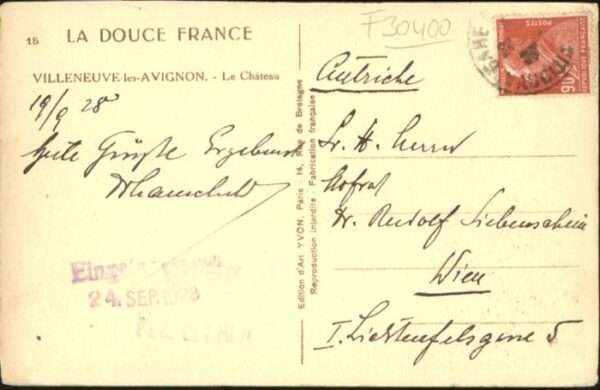 15 LA DOUCE FRANCE
VILLENEUVE-les-AVIGNON. - Le Château
19/9 28
Grüße Ergebenst
Edition d'Art YVON, Paris - 14, Rue de Bretagne
Reproduction interdite - Fabrication française
F30400
Autriche
Sr. H. Herrn
Hofrat
Dr. Rudolf Siebenschein
Wien
I. Lichtenfelsgasse 5
24. SEP. 1928
POSTES
REPUBLIQUE FRANÇAISE
90c